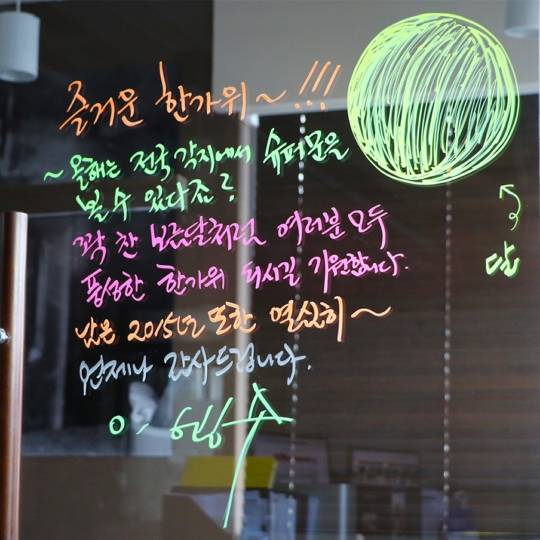 즐거운 한가위~!!!
~올해는 전국 각지에서 슈퍼문을
볼 수 있다죠?
꽉 찬 보름달처럼 여러분 모두
풍성한 한가위 되시길 기원합니다.
남은 2015년 또한 열심히~
언제나 감사드립니다.
달